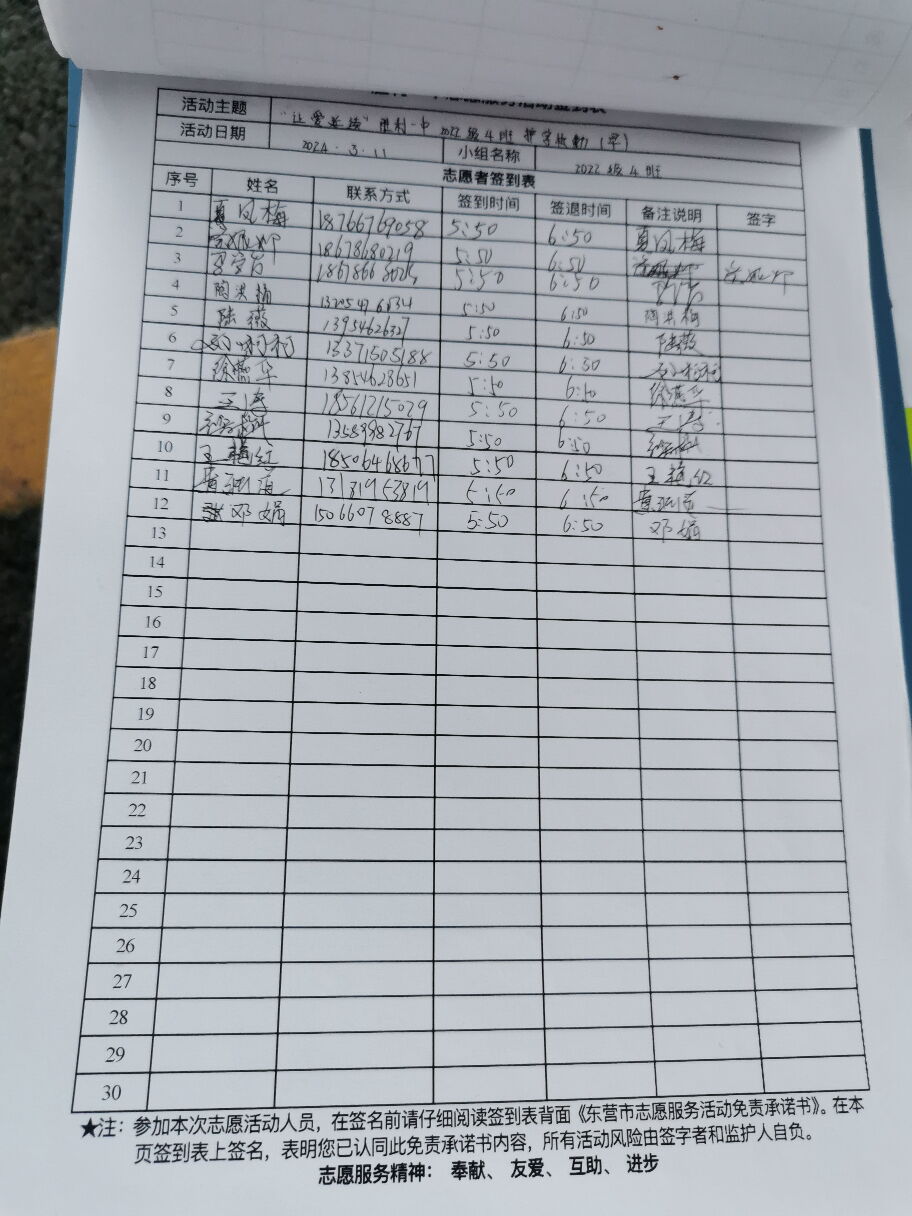 志愿服务活动签到表
活动主题 "让爱延续"胜利一中 2022级4班 护学执勤(早)
活动日期 2024.3.11 小组名称 2022级4班
志愿者签到表
序号 姓名 联系方式 签到时间 签退时间 备注说明 签字
1 夏凤梅 18766769058 5:50 6:50 夏凤梅
2 18678680219 5:50 6:50
3 5:50 6:50
4 陶洪梅 5:50 6:50 陶洪梅
5 陆薇 13954626327 5:50 6:50 陆薇
6 13371505188 5:50 6:50
7 徐燕华 13854628651 5:50 6:50 徐燕华
8 王涛 18561215029 5:50 6:50 王涛
9 13589982767 5:50 6:50
10 王艳红 18506468677 5:50 6:50 王艳红
11 13181953819 5:50 6:50
12 邓娟 15066078887 5:50 6:50 邓娟
13
14
15
16
17
18
19
20
21
22
23
24
25
26
27
28
29
30
★注：参加本次志愿活动人员，在签名前请仔细阅读签到表背面《东营市志愿服务活动免责承诺书》。在本
页签到表上签名，表明您已认同此免责承诺书内容，所有活动风险由签字者和监护人自负。
志愿服务精神：奉献、友爱、互助、进步